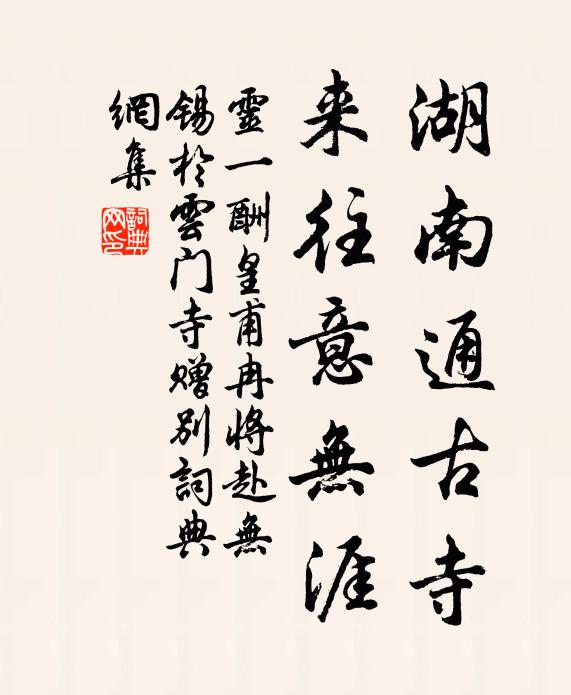 湖南通古寺
来往意無涯
靈一酬皇甫冉將赴無
錫於雲门寺贈别詞典
網集
詞典网印